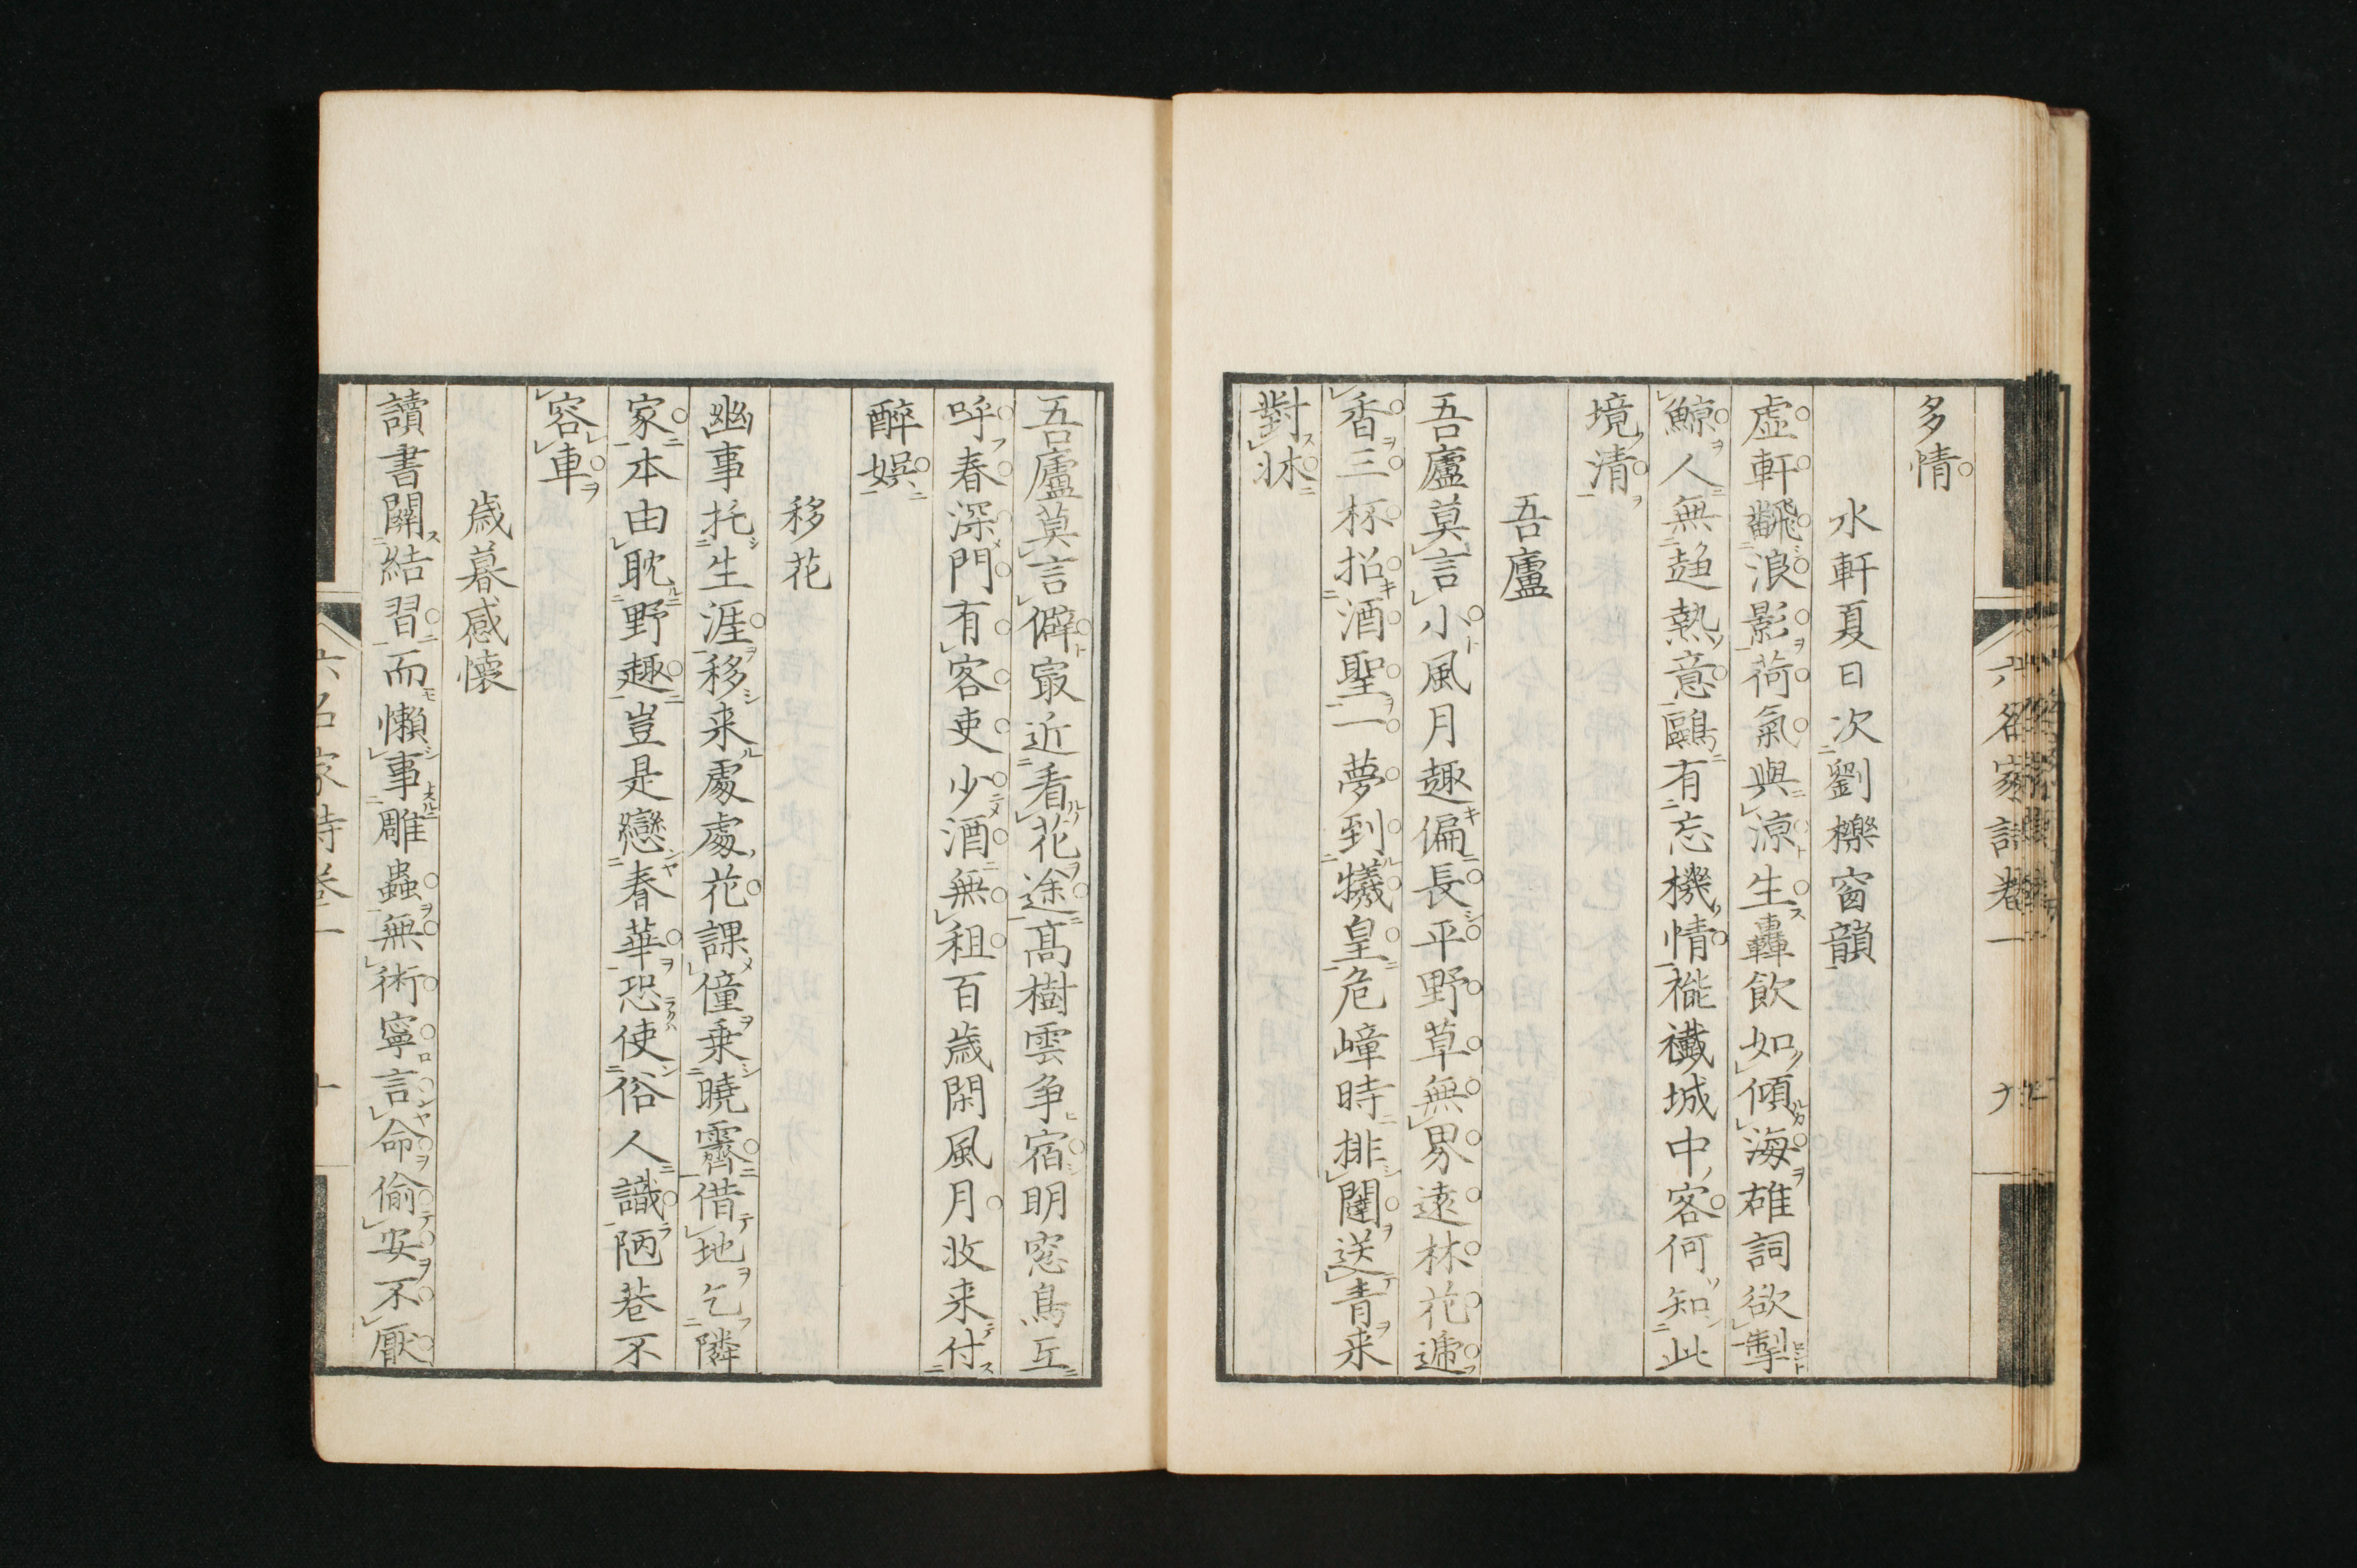 多情
水軒夏日次劉櫟窗韻
虛軒飜浪影荷氣與涼生轟飲如傾海雄詞欲掣
鯨人無趋熱意鷗有忘機情褦襶城中客何知此
境清
吾廬
吾廬莫言小風月趣偏長平野草無界遠林花遞
香三杯招酒聖一夢到犧皇危嶂時排闥送青来
對牀
六名家詩卷一
九
吾廬莫言僻㝡近看花途髙樹雲争宿明窓鳥互
呼春深門有客吏少酒無租百歳閑風月收来付
醉娯
移花
幽事托生涯移来處處花課僮乗曉霽借地乞隣
家本由耽野趣豈是戀春華恐使俗人識陋巷不
容車
歳暮感懷
讀書關結習而懶事雕蟲無術寧言命偷安不厭
六名家詩卷一
十